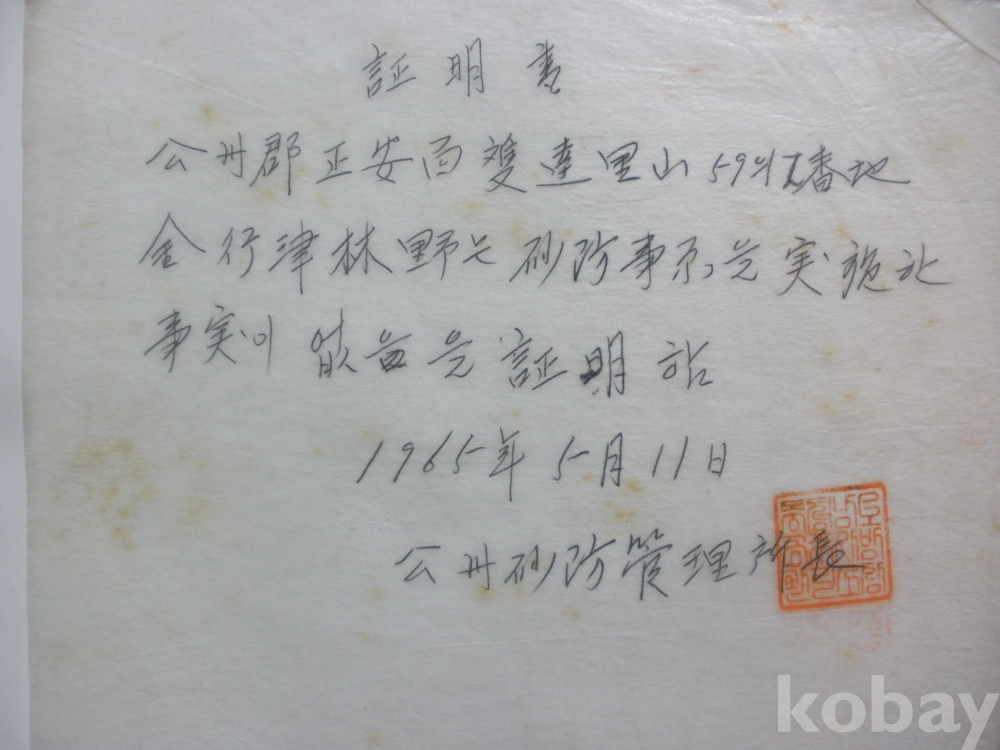 証明書
公州郡正安面雙達里山59의1番地
金行津林野는 砂防事業을 実施한
事実이 없음을 証明함
1965年 5月 11日
公州砂防管理所長
kobay